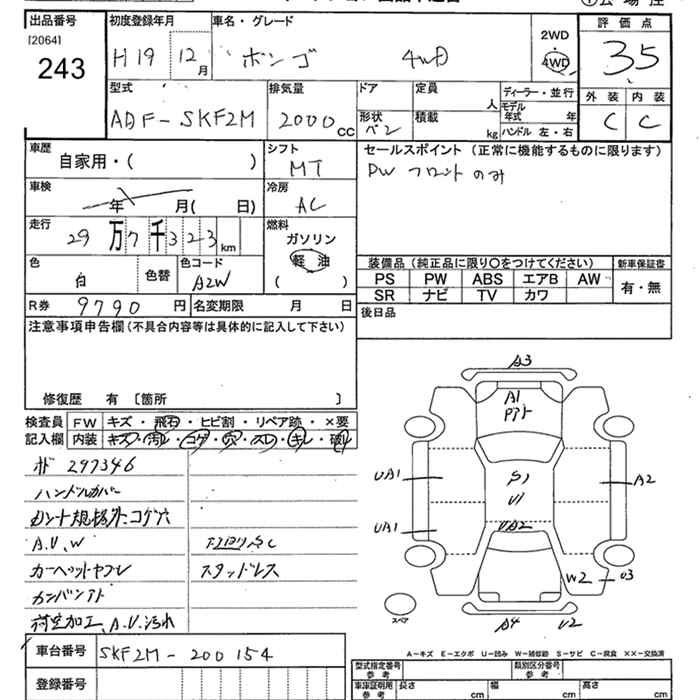 出品番号 初度登録年月 車名・グレード 2WD 評価点
[2064] H19 12月 ボンゴ 4WD 4WD 3.5
243 外装 内装
型式 排気量 ドア 定員 人 ディーラー・並行 C C
ADF-SKF2M 2000cc 形状 バン 積載 kg モデル年式 年
ハンドル 左・右
車歴 自家用・( ) シフト MT セールスポイント (正常に機能するものに限ります)
車検 年 月( 日) 冷房 AC PW フロントのみ
走行 29万7千323km 燃料 ガソリン
軽油
( )
色 白 色替 色コード A2W 装備品(純正品に限り○をつけてください) 新車保証書
PS PW ABS エアB AW 有・無
SR ナビ TV カワ
R券 9790円 名変期限 月 日 後日品
注意事項申告欄(不具合内容等は具体的に記入して下さい)
修復歴 有 〔箇所 〕
検査員記入欄 FW キズ・飛石・ヒビ割・リペア跡・×要
内装 キズ・汚レ・コゲ・穴・スレ・キレ・破レ
メド 297346
ハンドルカバー
A.U.W
スタッドレス
カーペットヤブレ
荷室加工、A.U.汚れ
A3
A1
UA1 S1 A2
U1
UA1 UA2
W2 U3
スペア A4 U2
A-キズ E-エクボ U-凹み W-補修跡 S-サビ C-腐食 XX-交換済
車台番号 SKF2M-200154
登録番号
型式指定番号 参考 類別区分番号 参考
車庫証明用 参考 長さ cm 幅 cm 高さ cm